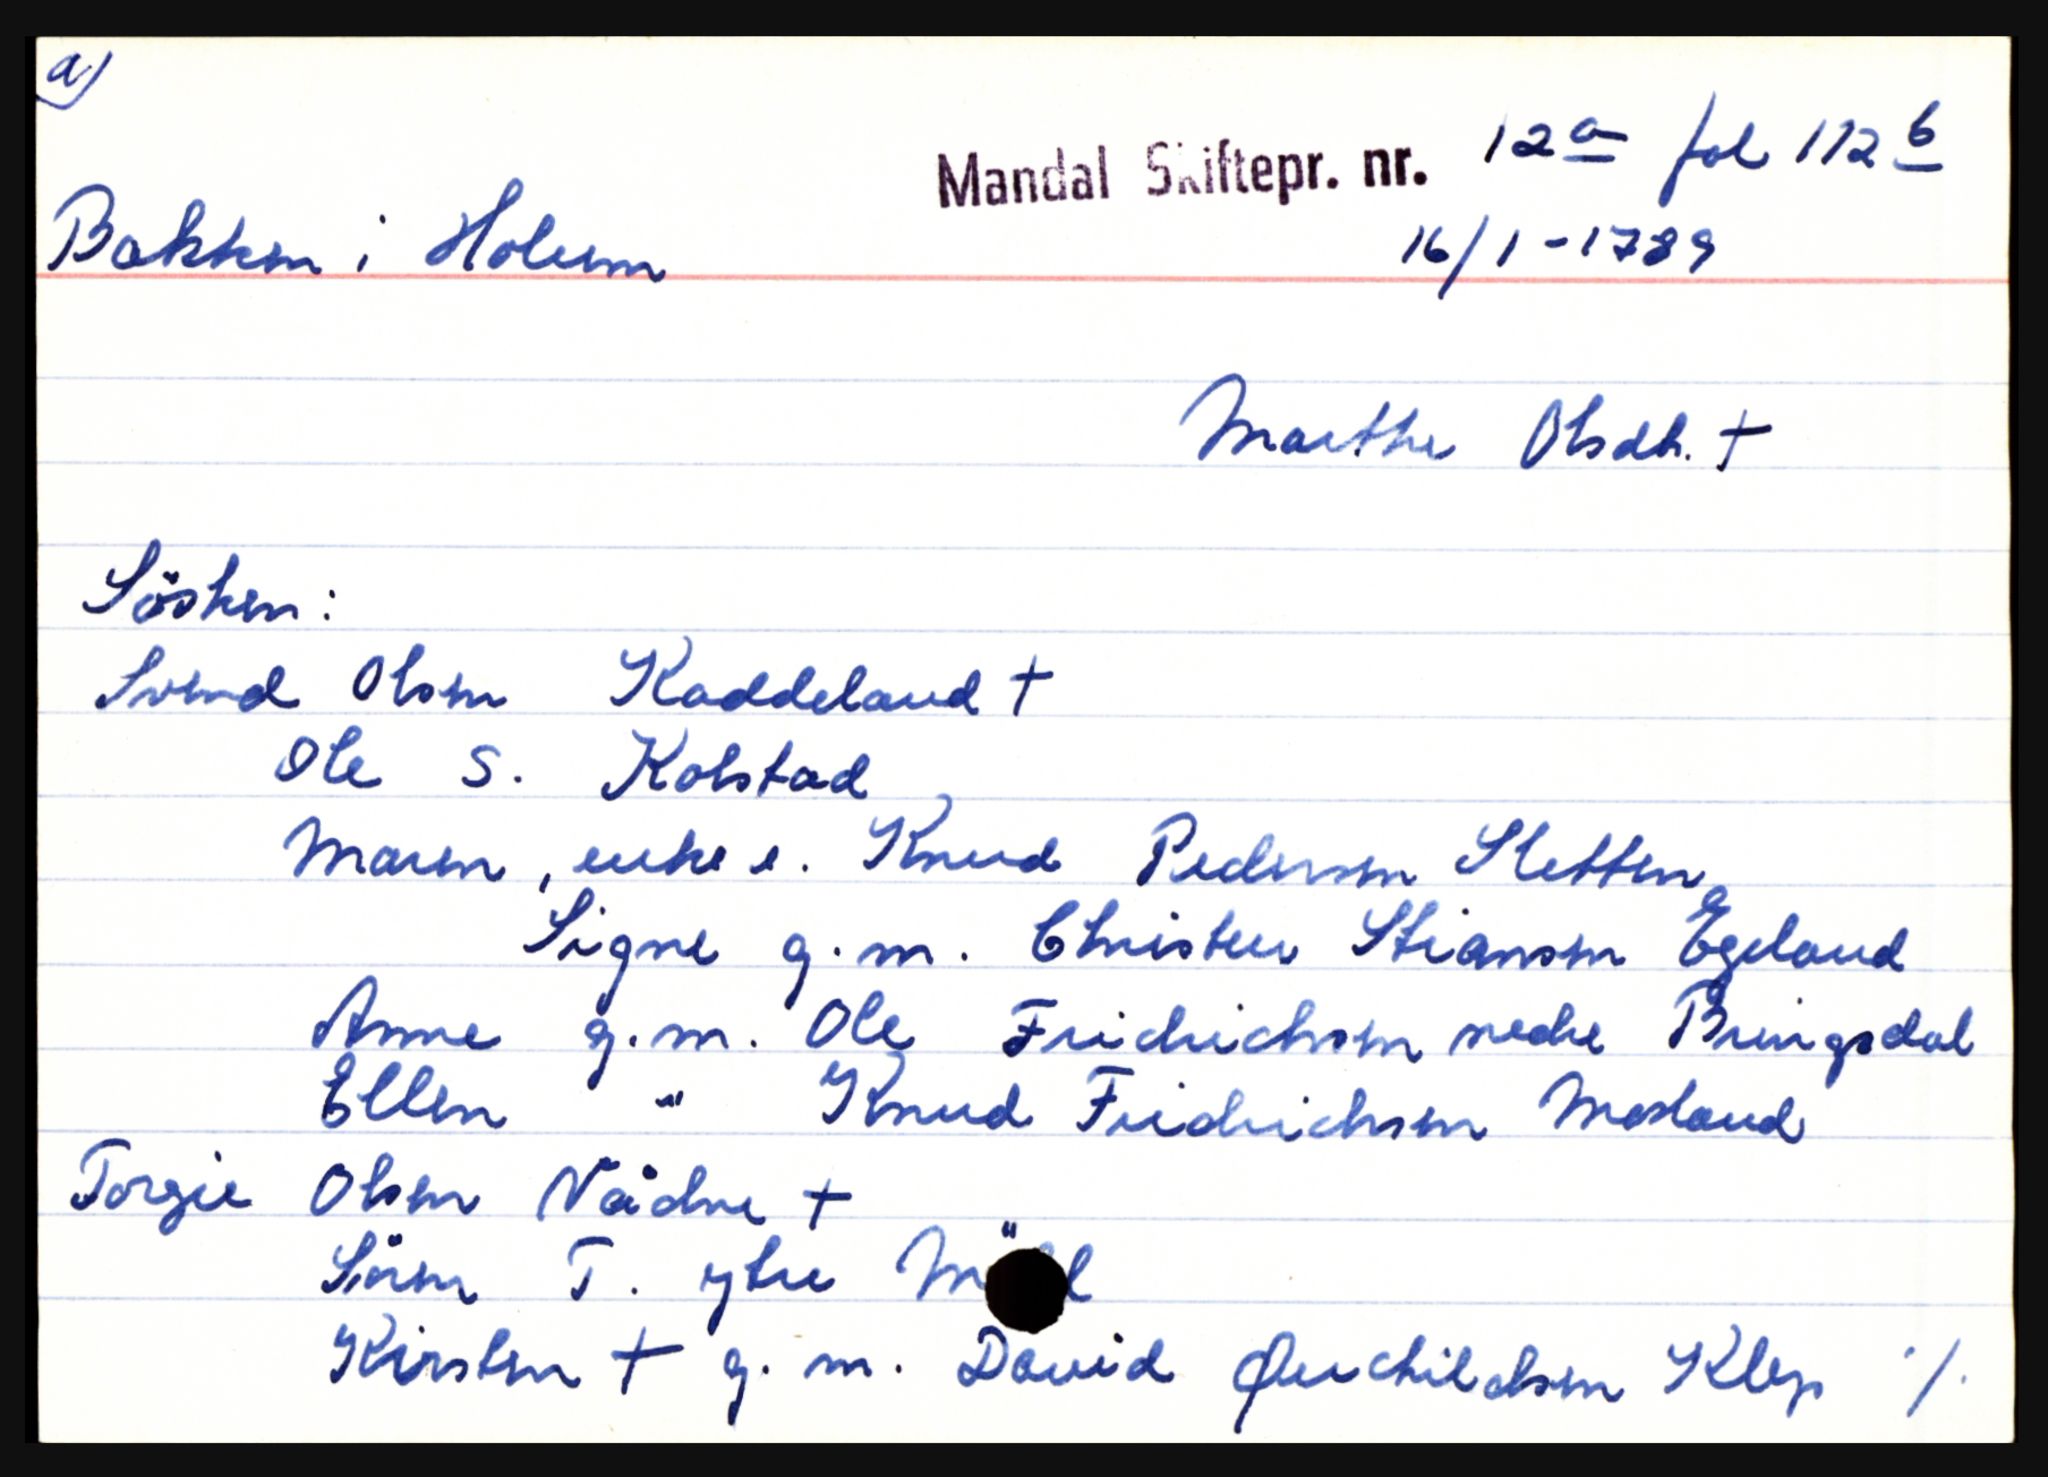 a)
Mandal Skiftepr. nr. 12 a fol 112 b
Bakken i Holum 16/1-1789
Marthe Olsdtr. †
Sösken:
Svend Olsen Kaddeland †
Ole S. Kolstad
Maren, enke e. Knud Pedersen Sletten
Signe g.m. Christen Stiansen Egeland
Anne g.m. Ole Fridrichsen nedre Bringsdal
Ellen " Knud Fridrichsen Mosland
Torgie Olsen Nödne †
Sören T. ytre
Kirsten † g.m. David Klep ./.